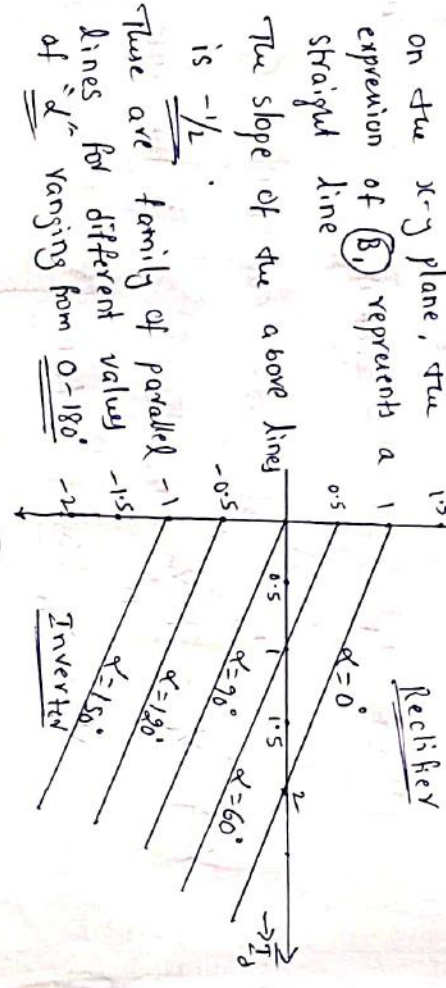 on the x-y plane, the
expression of (B₁) represents a
straight line
The slope of the above lines
is -1/2.
These are family of parallel
lines for different values
of "α" ranging from 0-180°
1.5
1
0.5
-0.5
-1
-1.5
-2
0.5
1
1.5
2
→Id
Rectifier
α=0°
α=60°
α=90°
α=120°
α=150°
Inverter